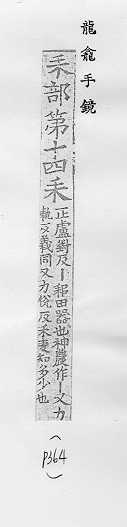 龍龕手鏡
耒部第十四耒
正盧對反丨耜田器也神農作丨又力
軌反義同又力反耒妻知多少也
(P364)